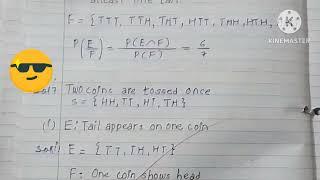 F = {TTT, TTH, THT, HTT, THH, HTH,
P(E/F) = P(E∩F)/P(F) = 6/7
KINEMASTER
Two coins are tossed once
S = {HH, TT, HT, TH}
(i) E: Tail appears on one coin
E = {TT, TH, HT}
F: One coin shows head